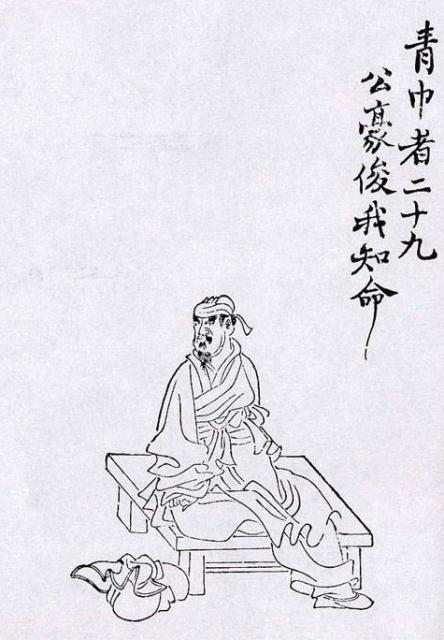 青巾者二十九
公豪俊我知命